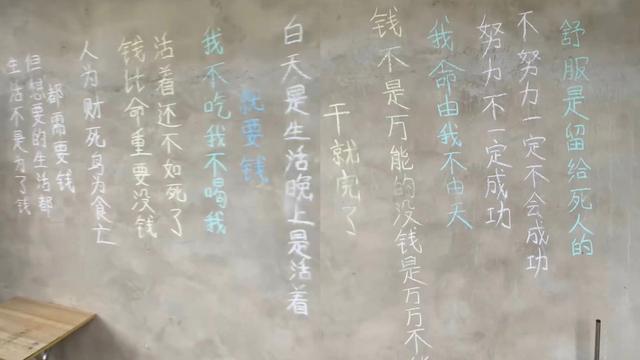 舒服是留给死人的
不努力一定不会成功
努力不一定成功
我命由我不由天
钱不是万能的没钱是万万不能
干就完了
白天是生活晚上是活着
就要钱
我不吃我不喝我
活着还不如死了
钱比命重要没钱
人为财死鸟为食亡
都需要钱
但想要的生活都
生活不是为了钱